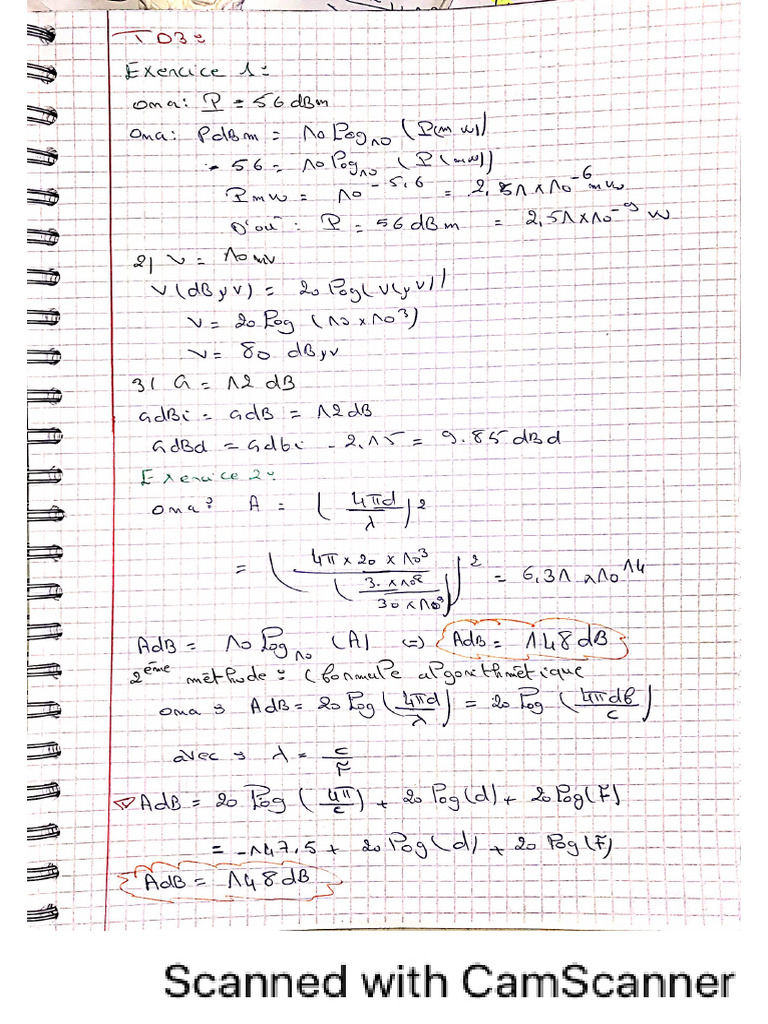 TD3:
Exercice 1:
ona: P = 56 dBm
Ona: PdBm = 10 log₁₀ (P(mW))
- 56 = 10 log₁₀ (P(mW))
Pmw = 10^-5,6 = 2,51 x 10^-6 mw
D'où: P = 56 dBm = 2,51 x 10^-9 W
2) V = 10 mv
V(dBμv) = 20 log(V(μv))
V = 20 log (10 x 10³)
V = 80 dBμv
3) G = 12 dB
GdBi = GdB = 12 dB
GdBd = Gdbi - 2,15 = 9.85 dBd
Exercice 2:
ona: A = (4πd/λ)²
= (4π x 20 x 10³/(3. x 10⁸/30 x 10⁹))² = 6,31 x 10^14
AdB = 10 log₁₀ (A) (=) AdB = 148 dB
2ème méthode: (formule algorithmétique
ona: AdB = 20 log(4πd/λ) = 20 log (4πdf/c)
avec: λ = c/F
AdB = 20 log (4π/c) + 20 log(d) + 20 log(F)
= -147,5 + 20 log(d) + 20 log(F)
AdB = 148 dB
Scanned with CamScanner